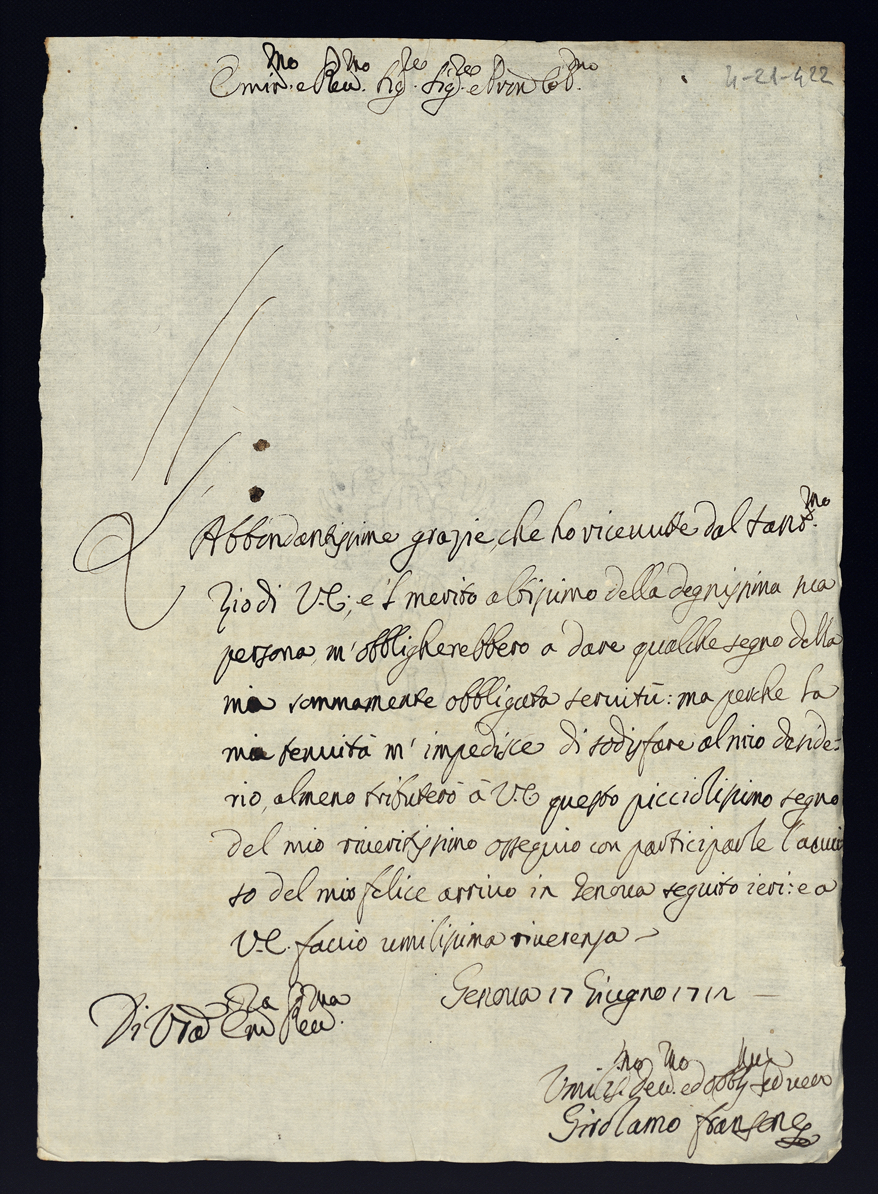 Emin.mo e Rev.mo Sig.re Sig.re e Pron Col.mo
4-21-422
Abbondantissime grazie, che ho riceuute dal Sant.mo
Zio di V.E; e 'l merito altissimo della degnissima sua
persona, m'obbligherebbero a dare qualche segno della
mia sommamente obbligata seruitù: ma perche la
mia tenuità m'impedisce di sodisfare al mio deside=
rio, almeno tributerò à V.E questo picciolissimo segno
del mio riueritissimo ossequio con participarle l'auui
so del mio felice arriuo in Genoua seguito ieri: e a
V.E. faccio umilissima riuerenza
Genoua 17 Giugno 1712
Di Vra Em.za Reu.ma
Umiliss.mo Deu.mo ed Obblig
Girolamo Franzone